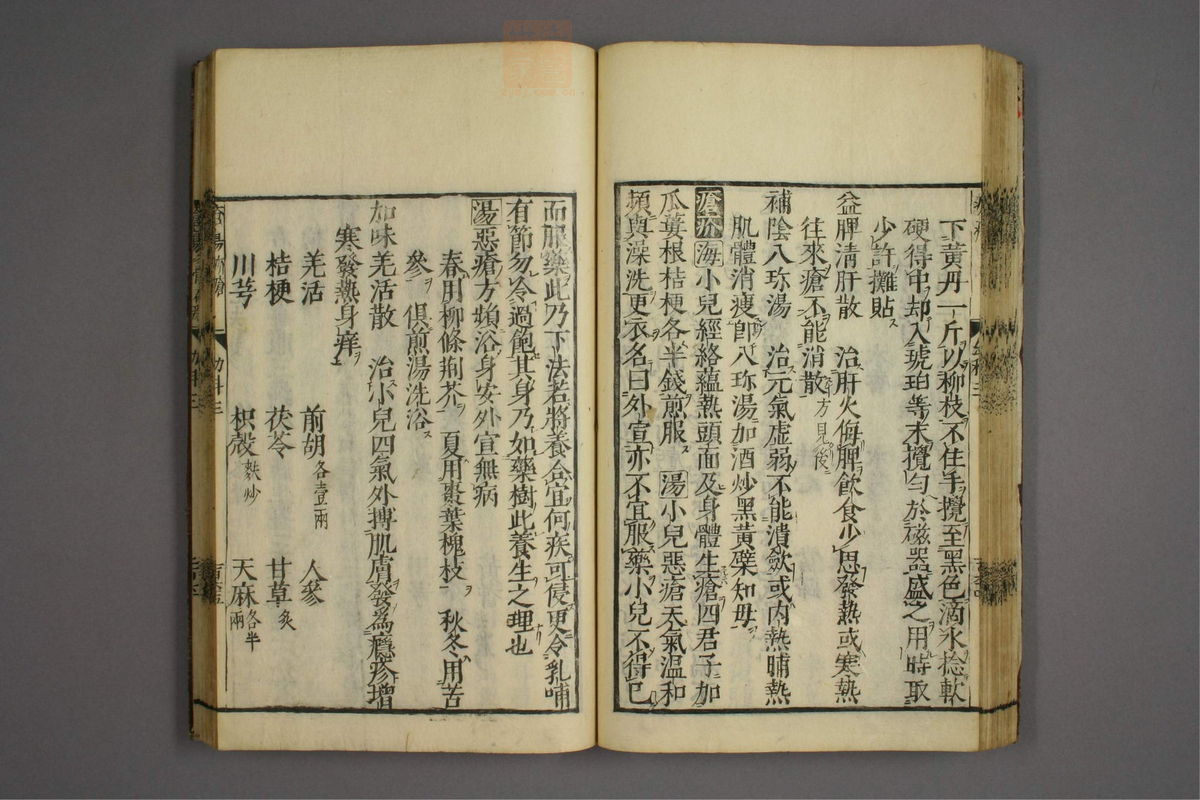 下黃丹一斤以柳枝不住手攪至黑色滴水捻軟
硬得中却入琥珀等末攪勻於磁器盛之用時取
少許攤貼ス
益脾清肝散 治肝火侮脾飲食少思發熱或寒熱
往來瘡不能消散方見後
補陰八珎湯 治元氣虛弱不能潰歛或内熱晡熱
肌體消瘦卽八珎湯加酒炒黑黃檗知毋
瘡疥 海小兒經絡蘊熱頭面及身體生瘡四君子加
瓜蔞根桔梗各半錢煎服ス 湯小兒惡瘡天氣温和
頻與澡洗更衣名曰外宣亦不宜服藥小兒不得已
而服藥此乃下法若將養合宜何疾可侵更令乳哺
有節勿冷過飽其身乃如藥樹此養生之理也
湯惡瘡方頻浴身安外宣無病
春用柳條荊芥 夏用棗葉槐枝 秋冬用苦
參 俱煎湯洗浴ス
加味羌活散 治小兒四氣外搏肌膚發爲癮疹增
寒發熱身痒
羌活 前胡各壹兩 人參
桔梗 茯苓 甘草炙
川芎 枳殼麩炒 天麻各半兩